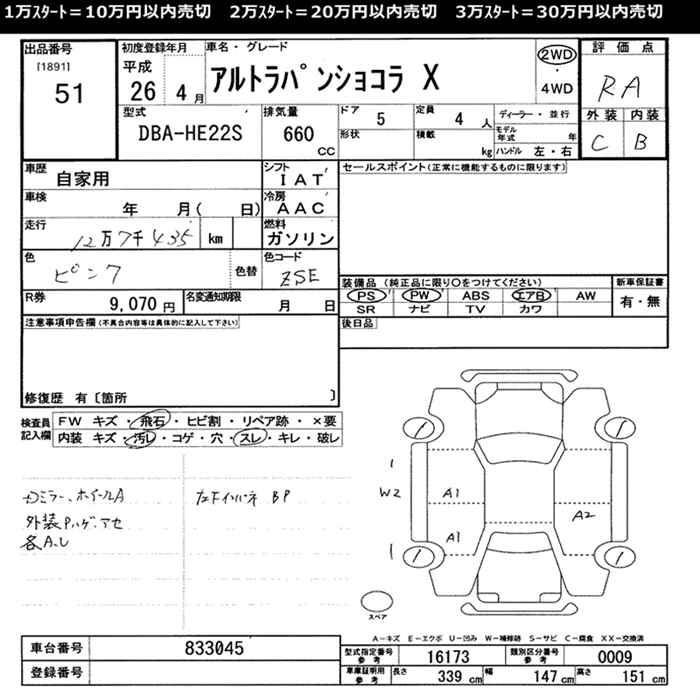 1万スタート=10万円以内売切 2万スタート=20万円以内売切 3万スタート=30万円以内売切
出品番号 初度登録年月 車名・グレード 評価点
[1891] 平成 アルトラパンショコラ X 2WD
51 26 4月 ・ 4WD RA
型式 排気量 ドア 5 定員 4人 ディーラー・並行 外装 内装
DBA-HE22S 660 CC 形状 積載 kg モデル年式 年 C B
ハンドル 左・右
車歴 自家用 シフト IAT セールスポイント(正常に機能するものに限ります)
車検 年 月( 日) 冷房 AAC
走行 12万7千435 km 燃料 ガソリン
色 ピンク 色替 色コード ZSE 装備品 (純正品に限り○をつけてください) 新車保証書
PS PW ABS エアB AW 有・無
R券 9,070円 名変通知期限 月 日 SR ナビ TV カワ
注意事項申告欄(不具合内容等は具体的に記入して下さい) 後日品
修復歴 有〔箇所 〕
検査員記入欄 FW キズ・飛石・ヒビ割・リペア跡・×要
内装 キズ・汚レ・コゲ・穴・スレ・キレ・破レ
ミラー、ホイールA BP
外装Pハゲ、アセ
各A.L
1
W2 A1 A2
A1
1
スペア
A-キズ E-エクボ U-凹み W-補修跡 S-サビ C-腐食 XX-交換済
車台番号 833045 型式指定番号 参考 16173 類別区分番号 参考 0009
登録番号 車庫証明用 参考 長さ 339cm 幅 147cm 高さ 151cm